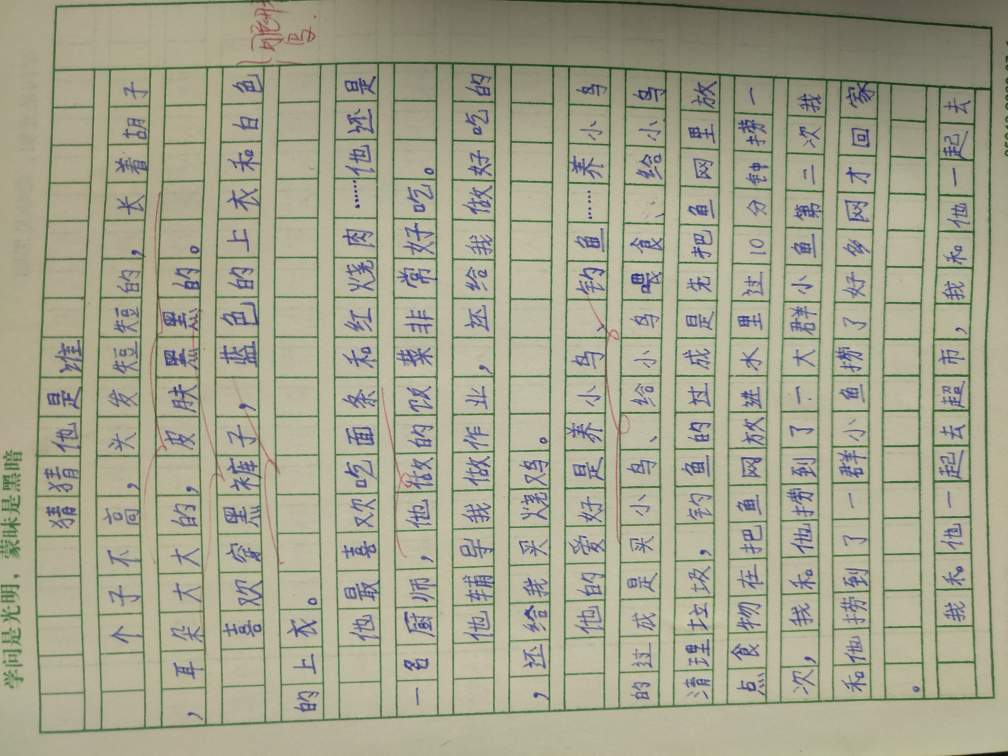 学问是光明，蒙昧是黑暗
猜猜他是谁
个子不高，头发短短的，长着胡子
，耳朵大大的，皮肤黑黑的。
喜欢穿黑裤子，蓝色的上衣和白色
的上衣。
他最喜欢吃面条和红烧肉……他还是
一名厨师，他做的饭菜非常好吃。
他辅导我做作业，还给我做好吃的
，还给我买烧鸡。
他的爱好是养小鸟、钓鱼……养小鸟
的过成是买小鸟、给小鸟喂食、给小鸟
清理垃圾，钓鱼的过成是先把鱼网里放
点食物在把鱼网放进水里过10分钟捞一
次，我和他捞到了一大群小鱼第二次我
和他捞到了一群小鱼捞了好多网才回家
。
我和他一起去超市，我和他一起去